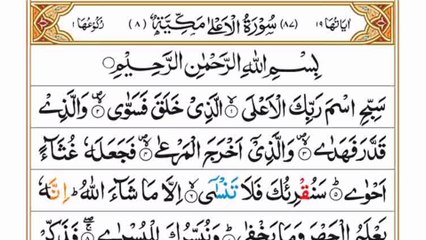 اٰیَاتُهَا ١٩ (٨٧) سُوْرَةُ الْاَعْلٰى مَكِّیَّةٌ (٨) رُكُوْعُهَا ١
بِسْمِ اللّٰهِ الرَّحْمٰنِ الرَّحِیْمِ
سَبِّحِ اسْمَ رَبِّكَ الْاَعْلَى ۙ‏﴿١﴾ الَّذِیْ خَلَقَ فَسَوّٰى ۪ۙ‏﴿٢﴾ وَالَّذِیْ
قَدَّرَ فَهَدٰى ۪ۙ‏﴿٣﴾ وَالَّذِیْۤ اَخْرَجَ الْمَرْعٰى ۪ۙ‏﴿٤﴾ فَجَعَلَهٗ غُثَآءً
اَحْوٰى ؕ‏﴿٥﴾ سَنُقْرِئُكَ فَلَا تَنْسٰۤى ۙ‏﴿٦﴾ اِلَّا مَا شَآءَ اللّٰهُ ؕ اِنَّهٗ
یَعْلَمُ الْجَهْرَ وَمَا یَخْفٰى ؕ‏﴿٧﴾ وَنُیَسِّرُكَ لِلْیُسْرٰى ۚۖ‏﴿٨﴾ فَذَكِّرْ